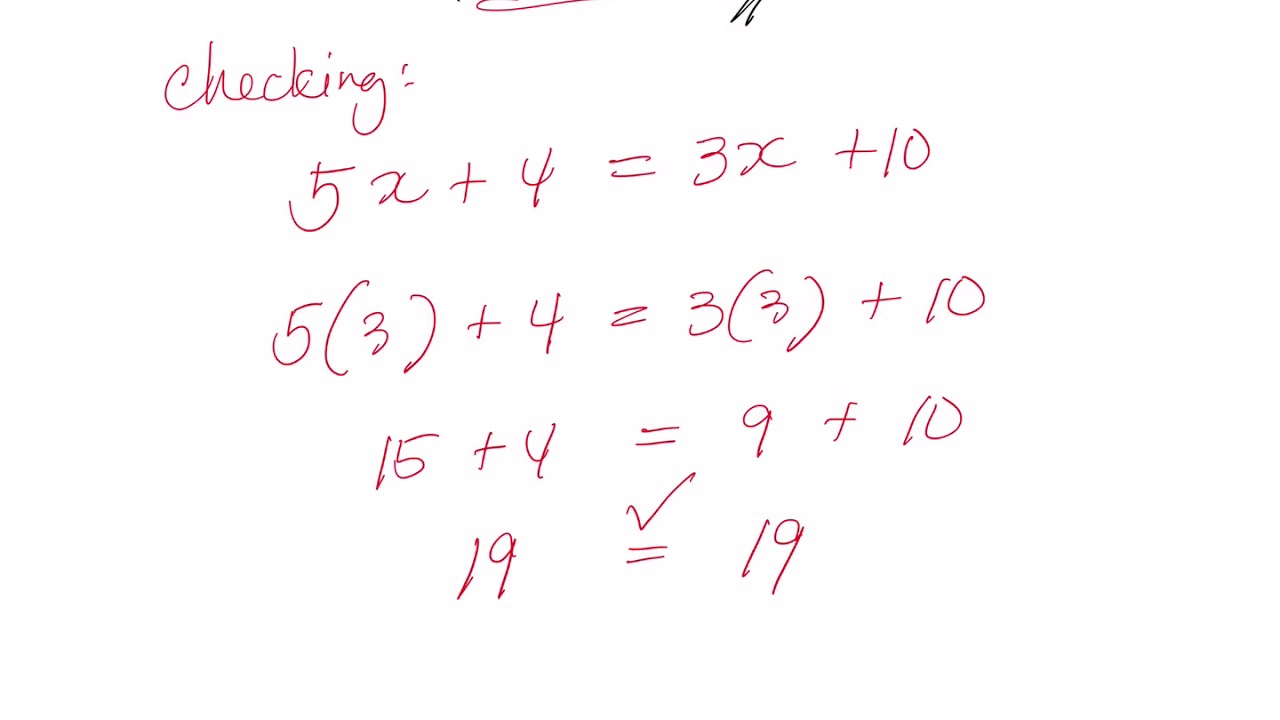 checking:
5x + 4 = 3x + 10
5(3) + 4 = 3(3) + 10
15 + 4 = 9 + 10
19 = 19